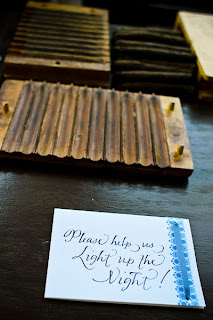 Please help us
Light up the
Night!